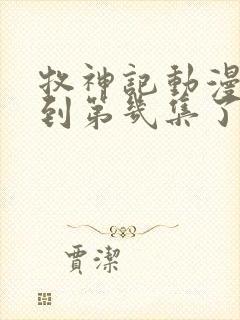 牧神記動漫
到第幾集了
賈潔